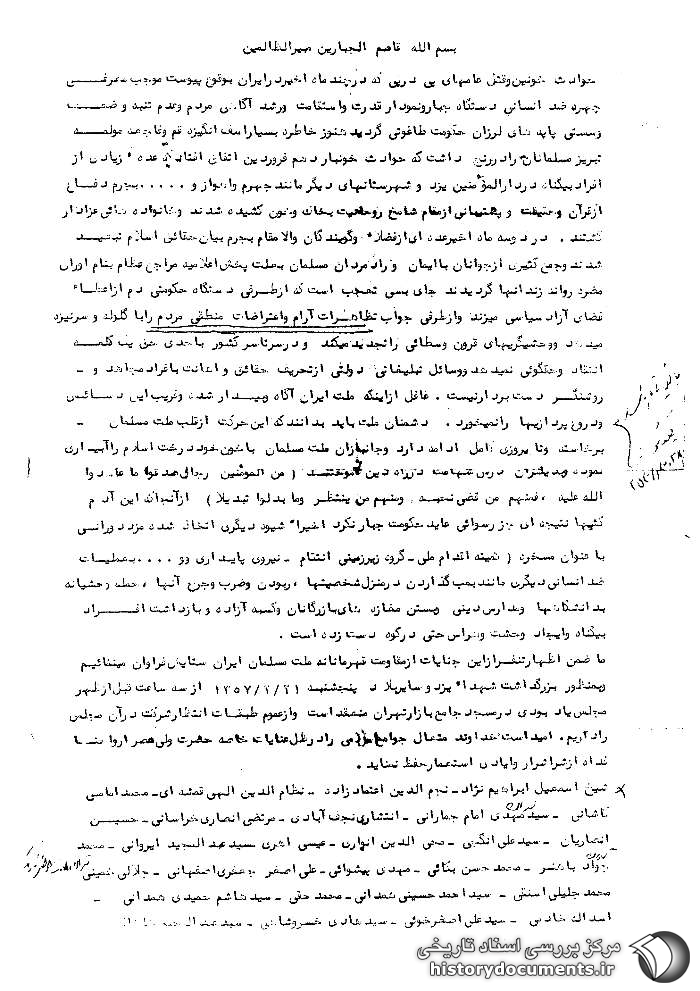 بسم الله قاصم الجبارین مبیرالظالمین
حوادث خونین وقتل عامهای پی درپی که درچند ماه اخیردرایران بوقوع پیوست موجب معرفی
چهره ضد انسانی دستگاه جبارونمودار قدرت واستقامت ورشد آگاهی مردم وعدم تنبه و ضعف
وسستی پایه های لرزان حکومت طاغوتی گردید هنوز خاطره بسیاراسف انگیزه قم وفاجعه مولمه
تبریز مسلمانان رادررنج داشت که حوادث خونبار دهم فروردین اتفاق افتاد عده زیادی از
افراد بیگناه دردارالمؤمنین یزد و شهرستانهای دیگر مانند جهرم واهواز و ..... بجرم دفاع
ازقرآن وحقیقت و پشتیبانی ازمقام شامخ روحانیت بخاک وخون کشیده شدند وخانواده هائی عزادار
گشتند . در دوسه ماه اخیرعده ای ازفضلاء وگویندگان والا مقام بجرم بیان حقائق اسلام تبعید
شدند وجمع کثیری ازجوانان باایمان ورادمردان مسلمان بعلت پخش اعلامیه مراجع عظام بنام اوراق
مضره روانه زندانها گردیدند جای بسی تعجب است که ازطرفی دستگاه حکومتی دم ازاعطاء
فضای آزاد سیاسی میزند وازطرفی جواب تظاهرات آرام واعتراضات منطقی مردم رابا گلوله و سرنیزه
میدهد ووحشیگریهای قرون وسطائی راتجدیدمیکند ودرسرتاسر کشور باحدی حق یک کلمه
انتقاد وحقگوئی نمیدهد ووسائل تبلیغاتی دولتی ازتحریف حقائق و اهانت بافراد مجاهد و -
روشنگر دست بردارنیست . غافل ازاینکه ملت ایران آگاه وبیدار شده وفریب این دسائس
ودروغ پردازیها رانمیخورد . دشمنان ملت باید بدانند که این حرکت ازقلب ملت مسلمان -
برخاسته وتا پیروزی کامل ادامه دارد وجانبازان ملت مسلمان باخون خود درخت اسلام راآبیاری
نموده وبدیگران درس شهامت درراه دین آموختند ( من المؤمنین رجال صدقوا ما عاهدوا
الله علیه ، فمنهم من قضی نحبه ، ومنهم من ینتظر وما بدلوا تبدیلا ) ازآنجاکه این آدم
کشیها نتیجه ای جز رسوائی عاید حکومت جبار نکرد اخیراً شیوه دیگری اتخاذ شده مزدورانسی
با عنوان مسخره ( کمیته اقدام ملی - گروه زیرزمینی انتقام - نیروی پایداری وو .... بعملیات
ضد انسانی دیگری مانند بمب گذاردن درمنزل شخصیتها ، ربودن وضرب وجرح آنها ، حمله وحشیانه
بدانشگاهها ومدارس دینی وبستن مغازه های بازرگانان وکسبه آزاده و بازداشت افراد
بیگناه وایجاد وحشت وهراس حتی درکوه دست زده است .
ما ضمن اظهارتنفرازاین جنایات ازمقاومت قهرمانانه ملت مسلمان ایران ستایش فراوان مینمائیم
وبمنظور بزرگداشت شهداء یزد و سایربلاد پنجشنبه ۱۳۵۷/۲/۲۱ از سه ساعت قبل ازظهر
مجلس یاد بودی درمسجد جامع بازارتهران منعقد است وازعموم طبقات انتظارشرکت درآن مجلس
راداریم . امید است خداوند متعال جوامع اسلامی رادرظل عنایات خاصه حضرت ولی عصر ارواحنا
فداه ازشراشرار وایادی استعمارحفظ نماید .
شیخ اسمعیل ابراهیم نژاد - نجم الدین اعتمادزاده - نظام الدین الهی قمشه ای - محمد امامی
کاشانی - سید مهدی امام جمارانی - انتشاری نجف آبادی - مرتضی انصاری خراسانی - حسین
انصاریان - سیدعلی انگجی - محی الدین انواری - عیسی اهری سیدعبدالمجید ایروانی - محمد
جواد باهنر - محمد حسن بکائی - مهدی پیشوائی - علی اصغر جعفری اصفهانی - جلالی خمینی
محمد جلیلی - سیداحمد حسینی همدانی - محمد حقی - سیدهاشم حمیدی همدانی -
اسداله خادمی - سیدعلی اصغرخوئی - سیدهادی خسروشاهی - سید
مرکز بررسی اسناد تاریخی
historydocuments.ir